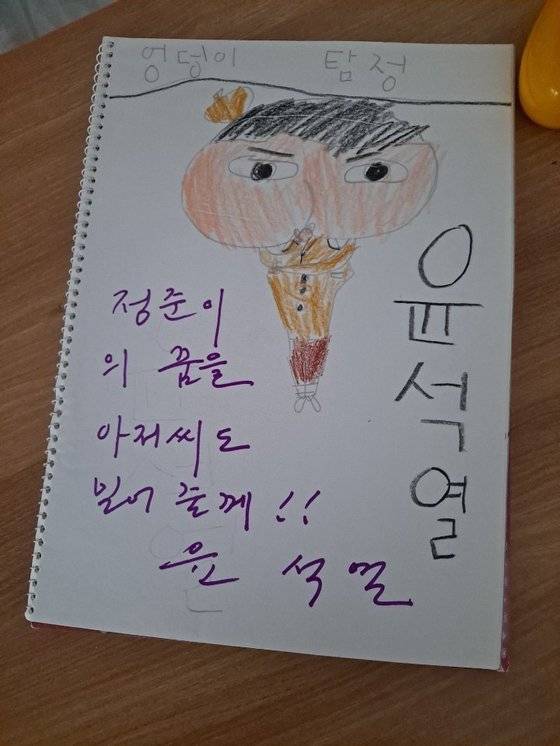 엉덩이 탐정
윤석열
정준이
의 꿈을
아저씨도
빌어 줄께!!
윤 석 열